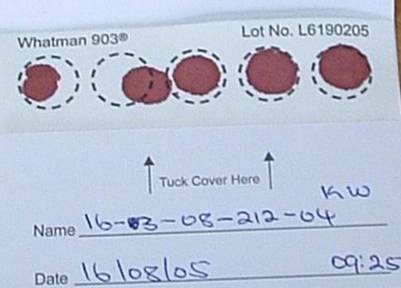 Whatman 903® Lot No. L6190205
Tuck Cover Here
KW
Name 16-03-08-212-04
Date 16/08/05 09:25